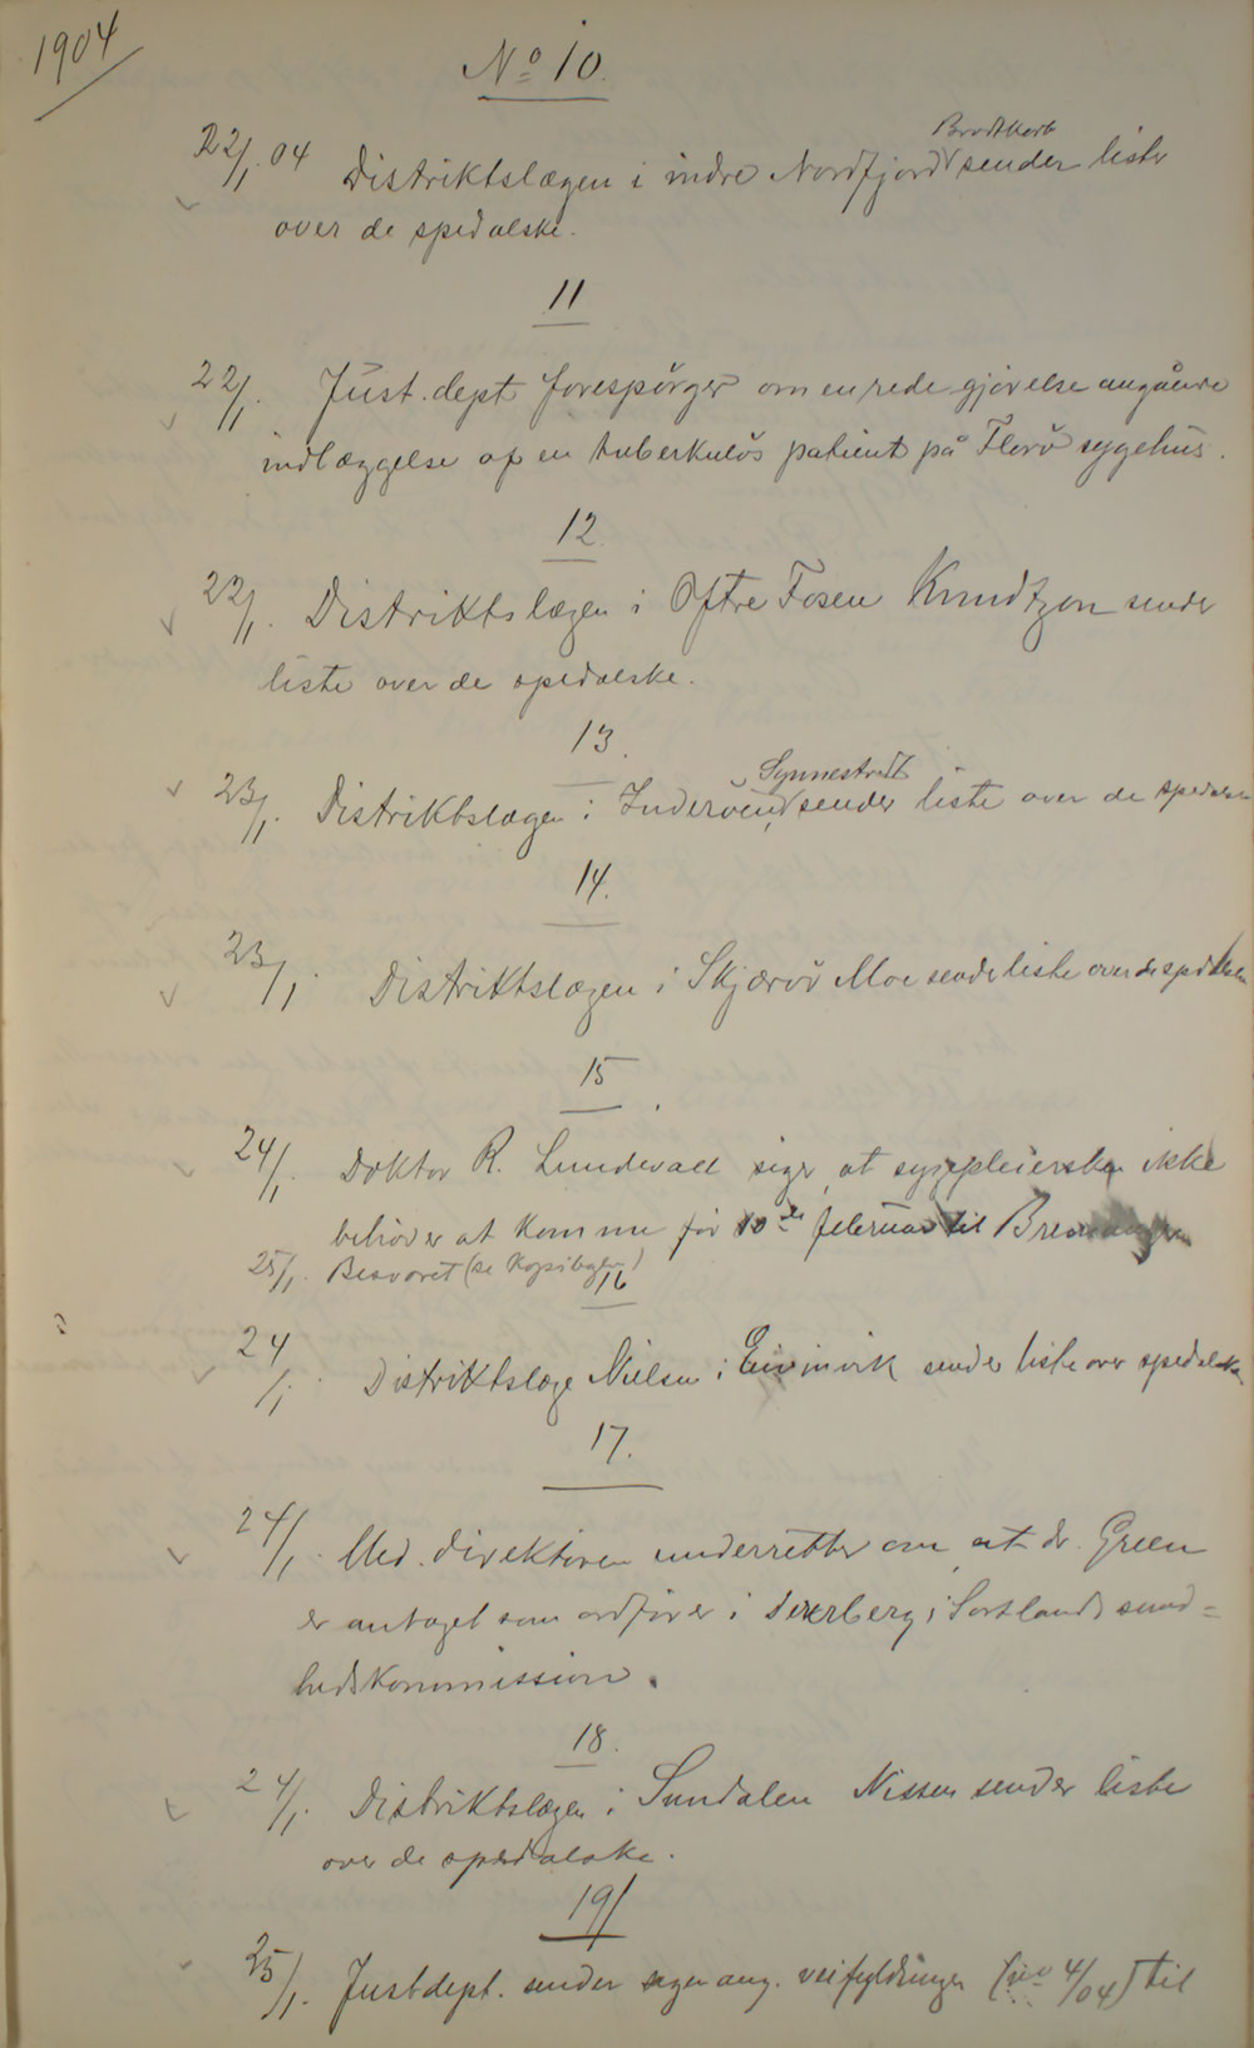 1904
No 10.
22/1.04 Distriktslægen i indre Nordfjord Brodtkorb sender liste
over de spedalske.
11
22/1. Just. dept forespörger om en rede gjörelse angående
indlæggelse af en tuberkulös patient på Florö sygehus.
12.
22/1. Distriktslægen i Östre Fosen Knudtzon sender
liste over de spedalske.
13.
23/1. Distriktslægen i Inderöen Synnestvedt sender liste over de spedalske
14.
23/1 Distriktslægen i Skjærvö Moe sender liste over de spedalske
15
24/1. Doktor R. Lundevall siger, at sygepleiersken ikke
behöver at komme för 10de februar til Bremanger
25/1. Besvaret (se Kopibogen)
16
24/1. Distriktslæge Nielsen i Eivinvik sender liste over spedalske
17.
24/1. Med. direktören underretter om at dr. Green
er antaget som ordförer i Sortlands sund=
hedskommission.
18.
24/1. Distriktslægen i Sundalen Nissen sender liste
over de spedalske.
19
25/1. Justdept. sender sagen ang. veifyldninger (no 4/04) til